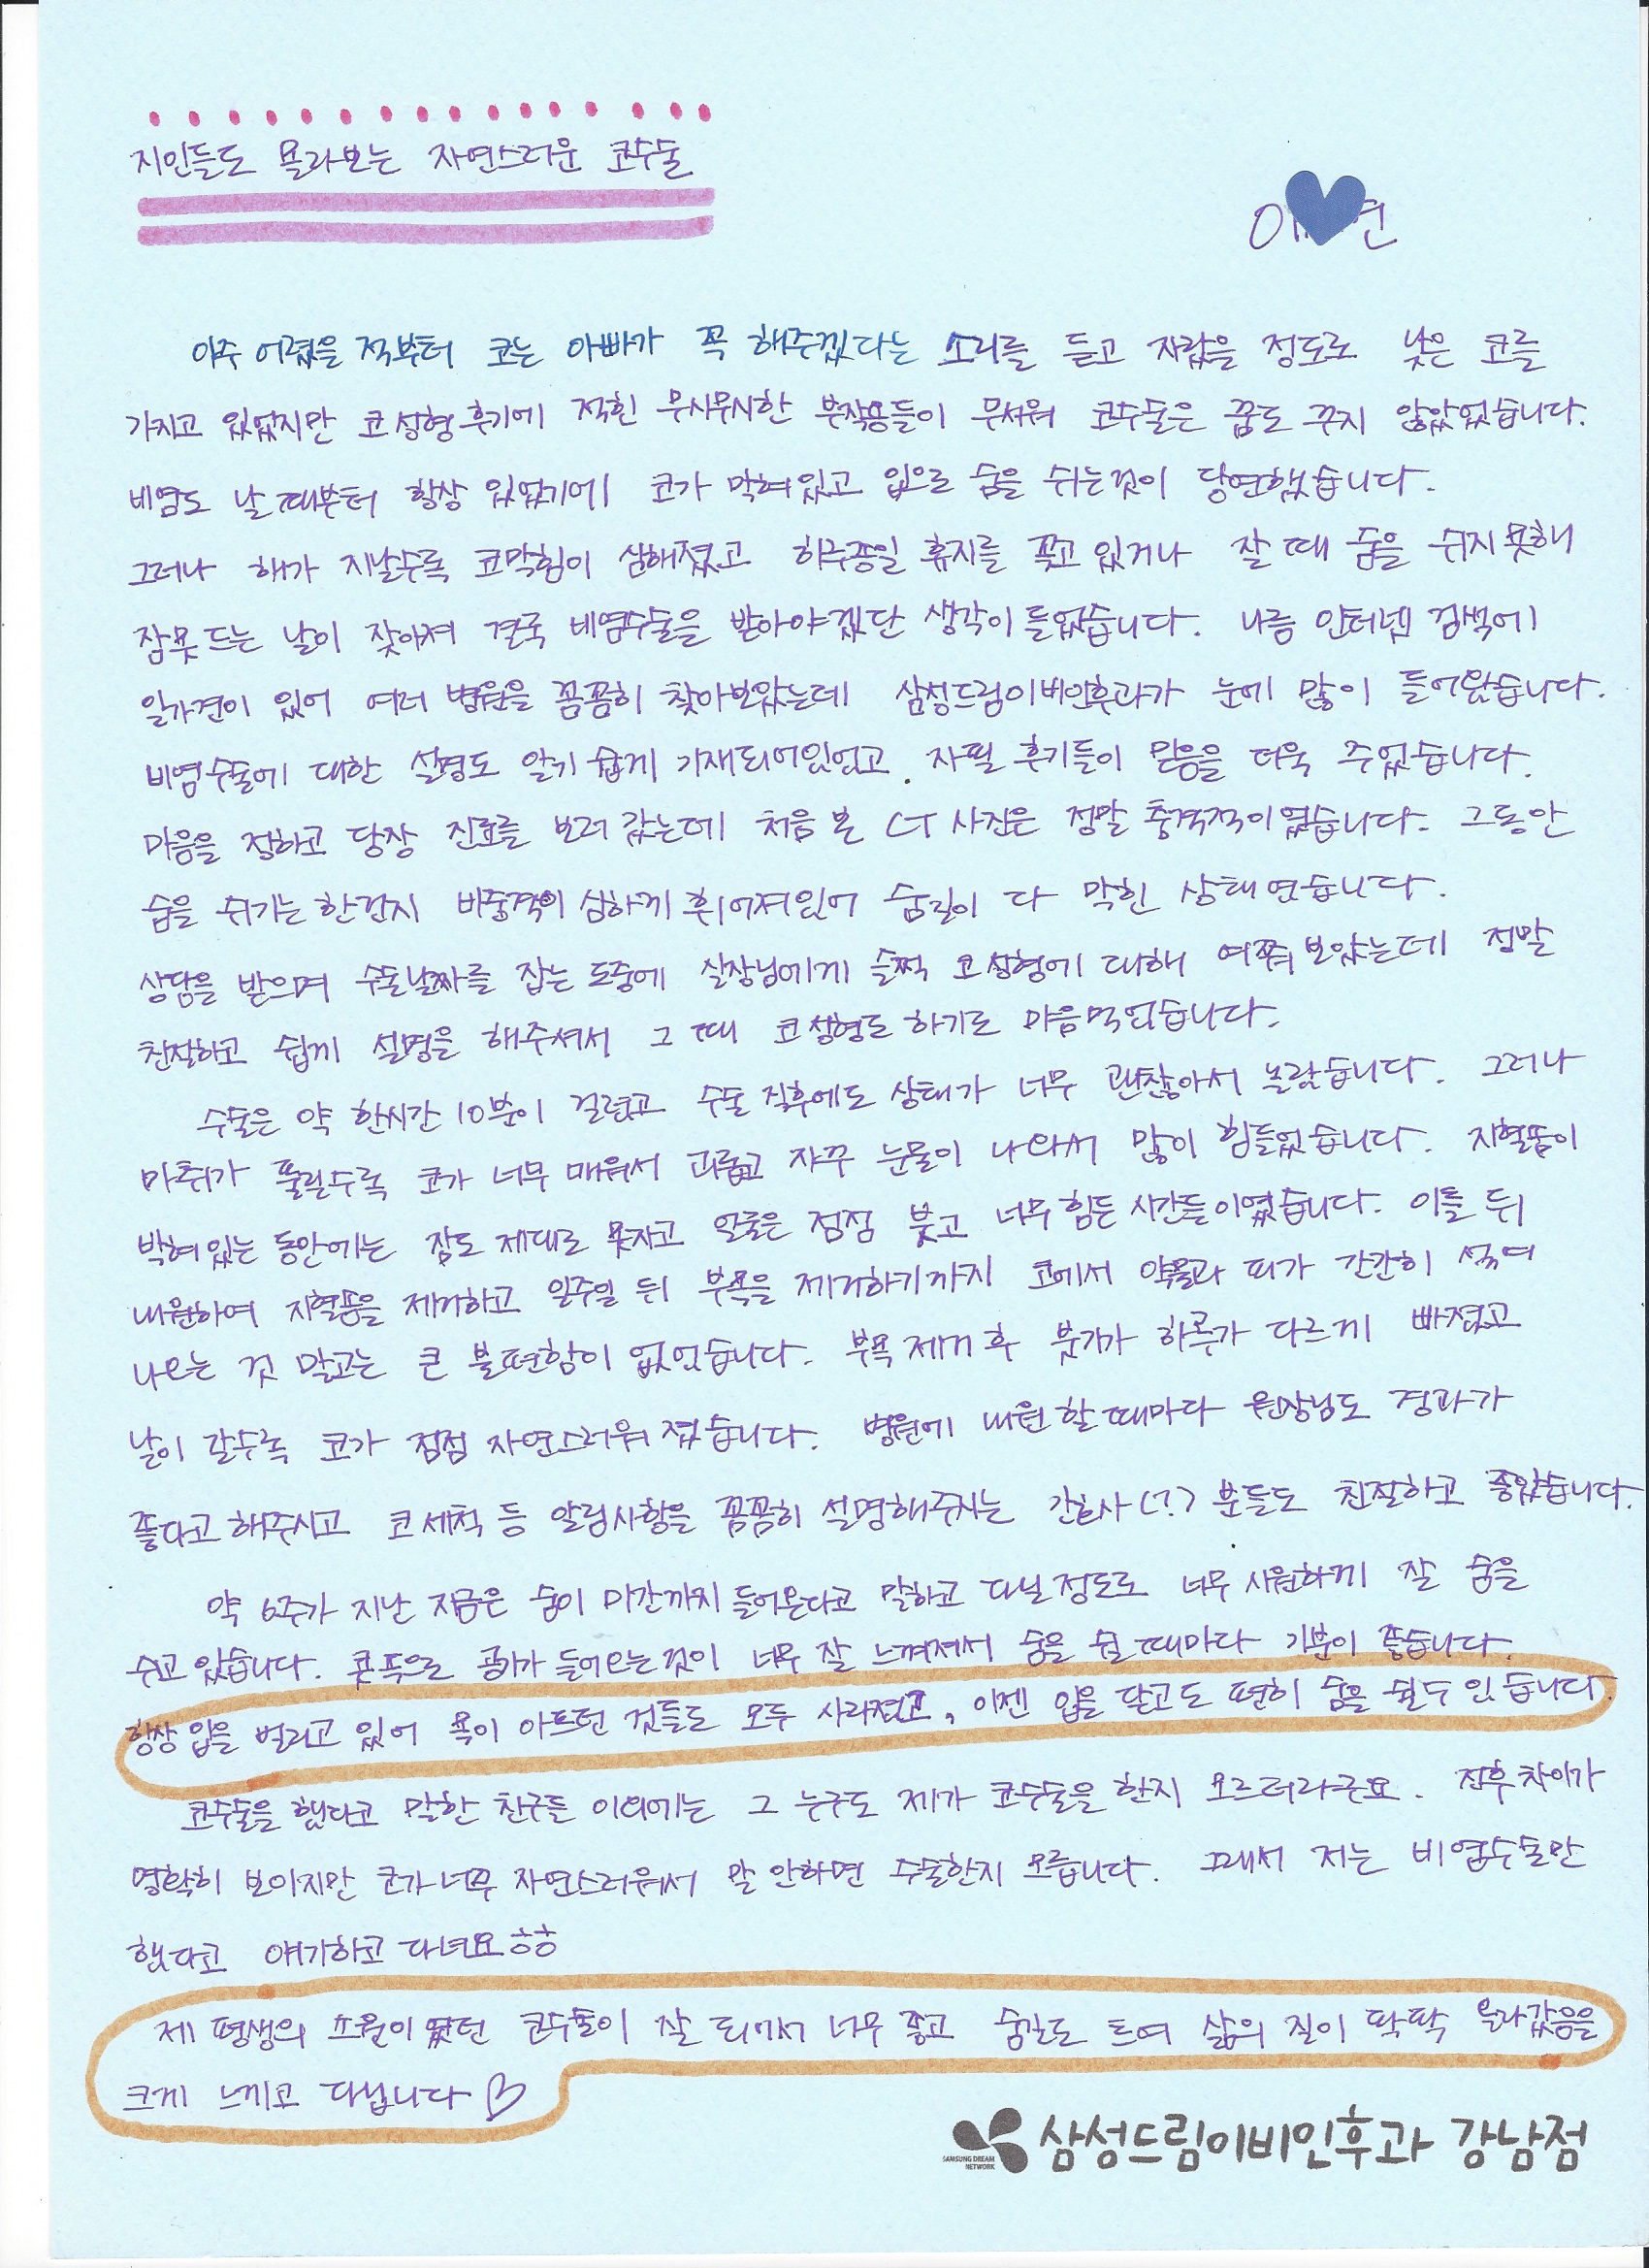 지인들도 몰라보는 자연스러운 코수술
이 연
아주 어렸을 적부터 코는 아빠가 꼭 해주겠다는 소리를 듣고 자랐을 정도로 낮은 코를
가지고 있었지만 코성형후기에 적힌 무시무시한 부작용들이 무서워 코수술은 꿈도 꾸지 않았었습니다.
비염도 날때부터 항상 있었기에 코가 막혀있고 입으로 숨을 쉬는것이 당연했습니다.
그러나 해가 지날수록 코막힘이 심해졌고 하루종일 휴지를 꽂고 있거나 잘 때 숨을 쉬지못해
잠못드는 날이 잦아져 결국 비염수술을 받아야겠단 생각이 들었습니다. 나름 인터넷 검색에
일가견이 있어 여러 병원을 꼼꼼히 찾아보았는데 삼성드림이비인후과가 눈에 많이 들어왔습니다.
비염수술에 대한 설명도 알기 쉽게 기재되어있었고 자필 후기들이 믿음을 더욱 주었습니다.
마음을 정하고 당장 진료를 보러 갔는데 처음 본 CT 사진은 정말 충격적이였습니다. 그동안
숨을 쉬기는 한건지 비중격이 심하게 휘어져있어 숨길이 다 막힌 상태였습니다.
상담을 받으며 수술날짜를 잡는 도중에 실장님에게 슬쩍 코성형에 대해 여쭤보았는데 정말
친절하고 쉽게 설명을 해주셔서 그 때 코성형도 하기로 마음먹었습니다.
수술은 약 한시간 10분이 걸렸고 수술 직후에도 상태가 너무 괜찮아서 놀랐습니다. 그러나
마취가 풀릴수록 코가 너무 매워서 괴롭고 자꾸 눈물이 나와서 많이 힘들었습니다. 지혈솜이
박혀있는 동안에는 잠도 제대로 못자고 얼굴은 점점 붓고 너무힘든 시간들이였습니다. 이틀 뒤
내원하여 지혈솜을 제거하고 일주일 뒤 부목을 제거하기까지 코에서 약물과 피가 간간히 섞여
나오는 것 말고는 큰 불편함이 없었습니다. 부목제거 후 붓기가 하루가 다르게 빠졌고
날이 갈수록 코가 점점 자연스러워졌습니다. 병원에 내원할때마다 원장님도 경과가
좋다고 해주시고 코세척 등 알림사항을 꼼꼼히 설명해주시는 간호사(?) 분들도 친절하고 좋았습니다.
약 6주가 지난 지금은 숨이 미간까지 들어온다고 말하고 다닐정도로 너무 시원하게 잘 숨을
쉬고 있습니다. 콧폭으로 공기가 들어오는것이 너무 잘 느껴져서 숨을 쉴때마다 기분이 좋습니다.
항상 입을 벌리고 있어 목이 아프던 것들도 모두 사라졌고, 이젠 입을 닫고도 편히 숨을 쉴수있습니다.
코수술을 했다고 말한 친구들 이외에는 그 누구도 제가 코수술을 한지 모르더라구요. 전후차이가
명확히 보이지만 코가너무 자연스러워서 말 안하면 수술한지 모릅니다. 그래서 저는 비염수술만
했다고 얘기하고 다녀요ㅎㅎ
제 평생의 소원이였던 코수술이 잘 되어서 너무 좋고 숨길도 트여 삶의 질이 팍팍 올라갔음을
크게 느끼고 다닙니다♡
삼성드림이비인후과 강남점
SAMSUNG DREAM
NETWORK